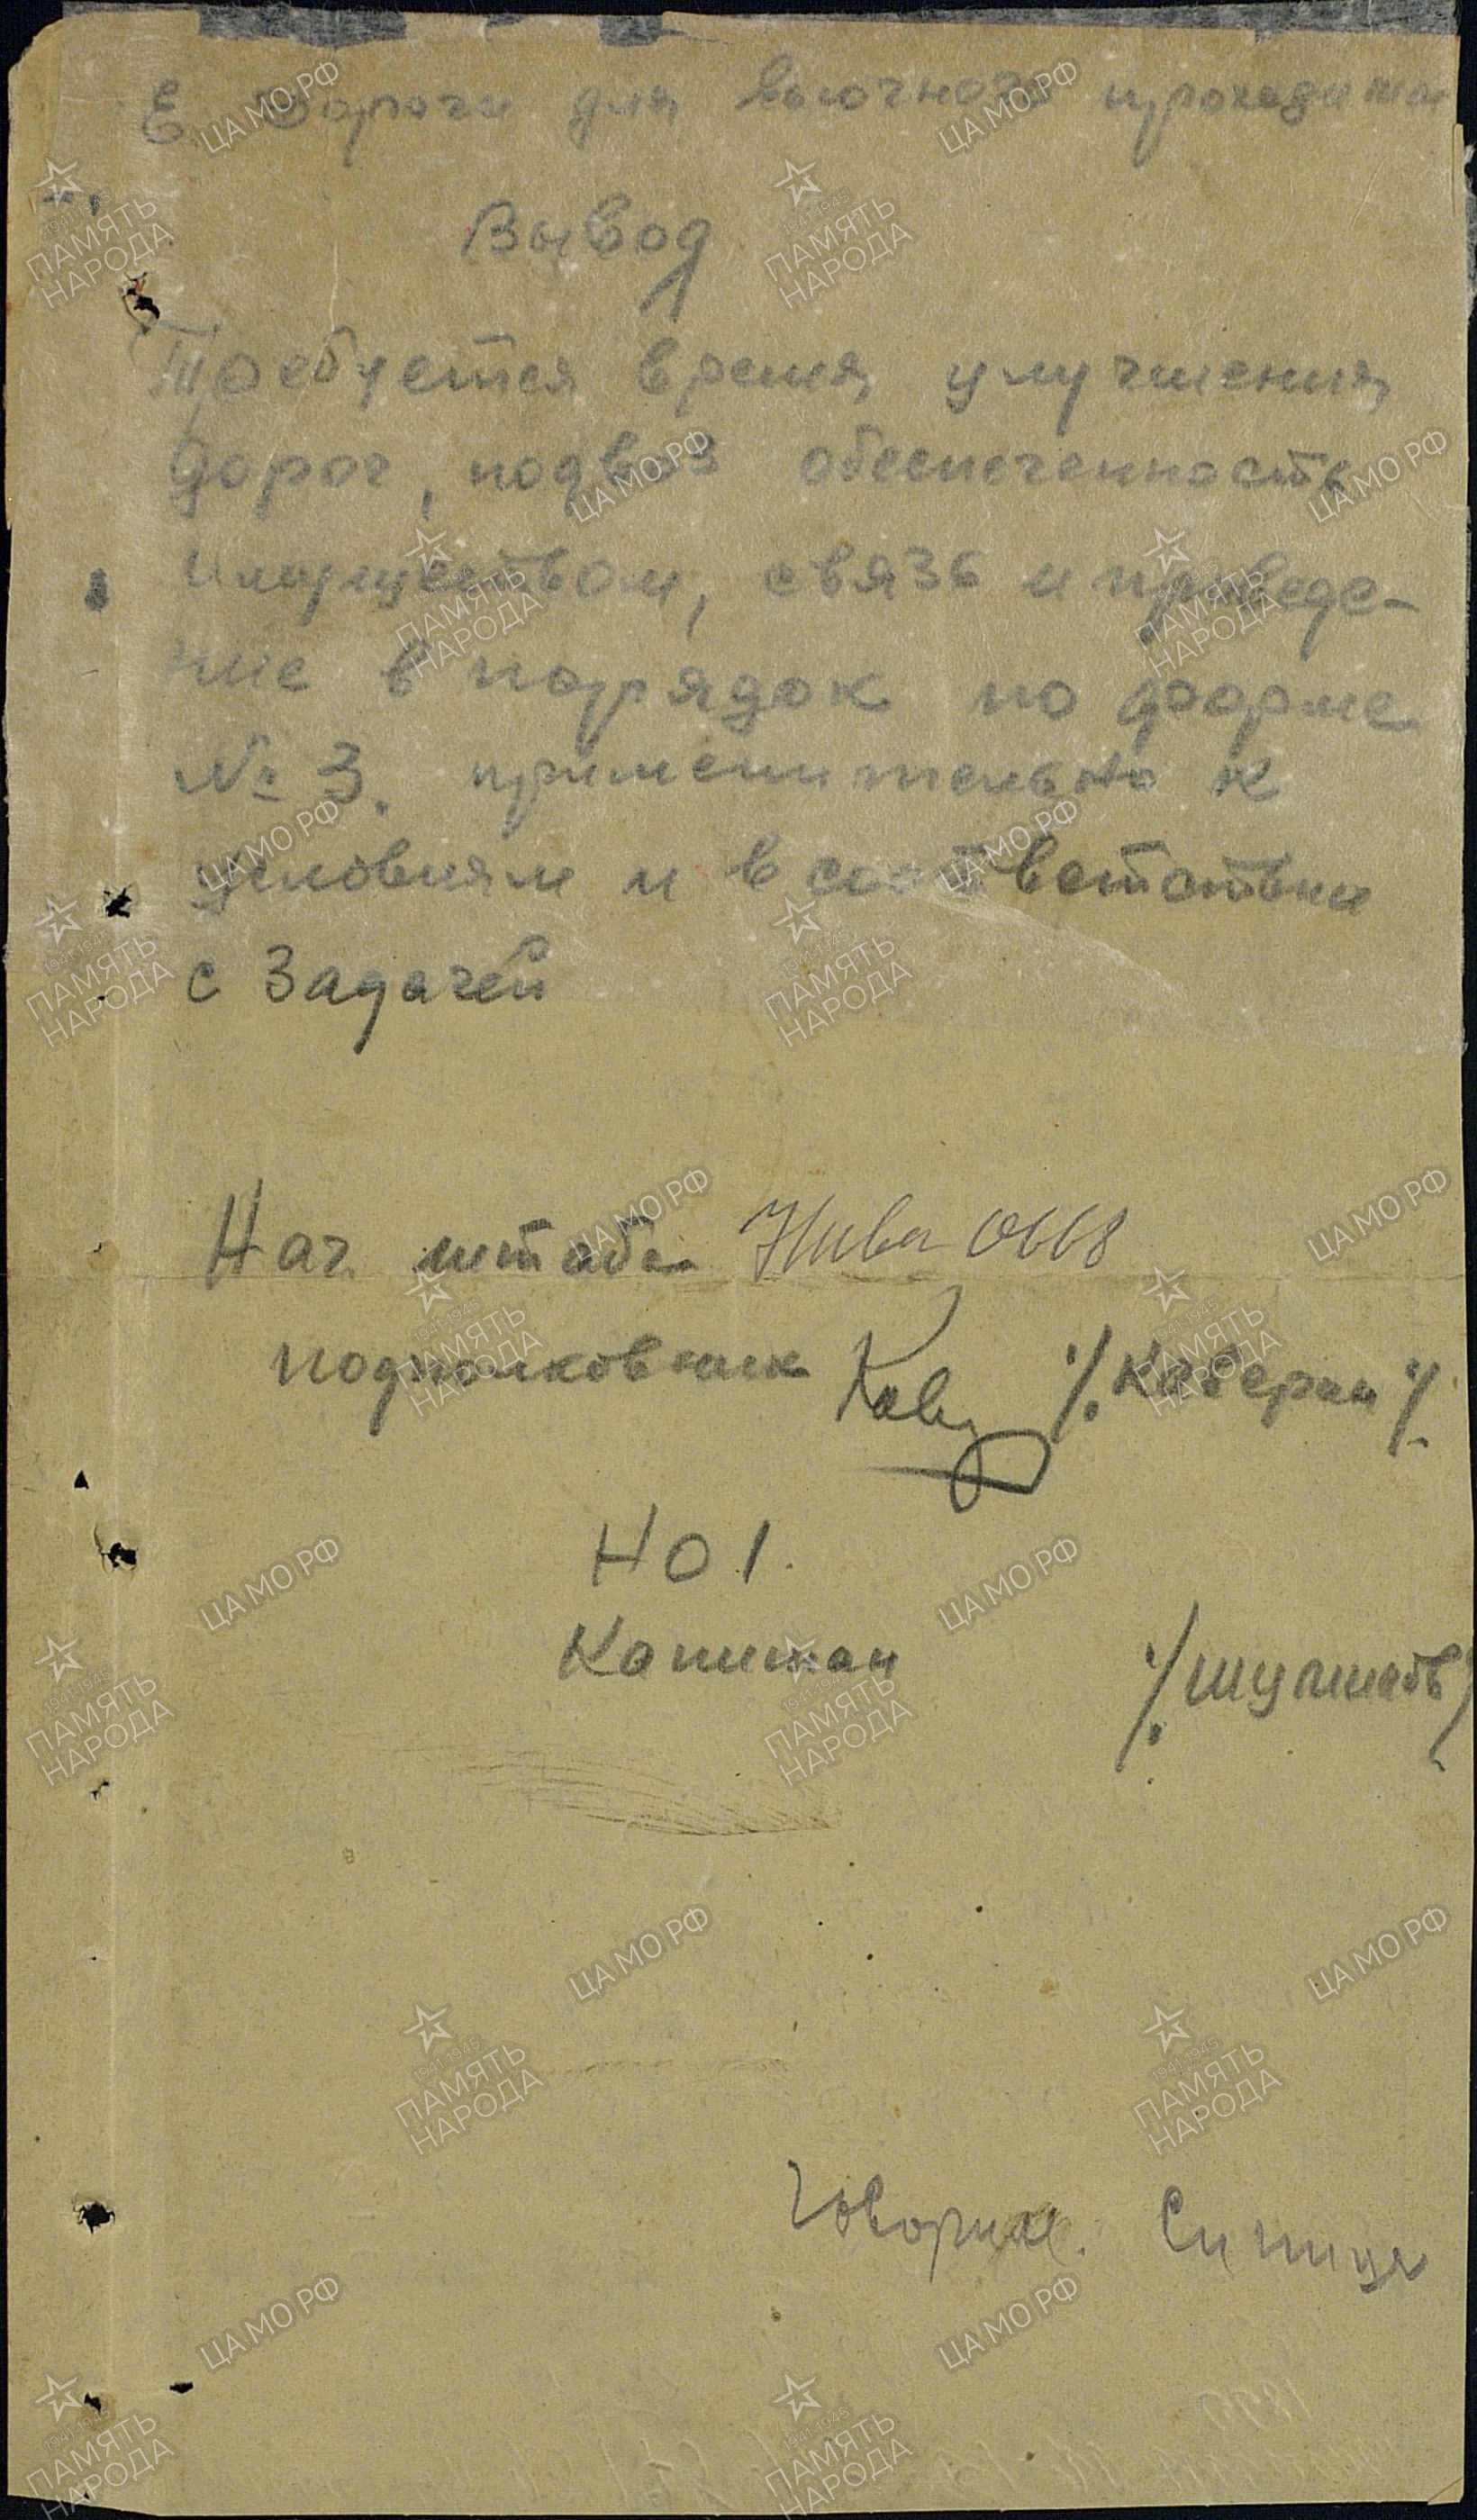 Е. Дороги для вьючного проходимы
Вывод
Требуется время, улучшения
дорог, подвоз обеспеченность
имуществом, связь и приведе-
ние в порядок по форме
№ 3. применительно к
условиям и в соответствии
с задачей
Нач штаба Нива 0668
подполковник Кав /Каверин/
НО 1.
Капитан /Шулинов/
Говорил. Синица
ЦА МО РФ
1941-1945
ПАМЯТЬ
НАРОДА